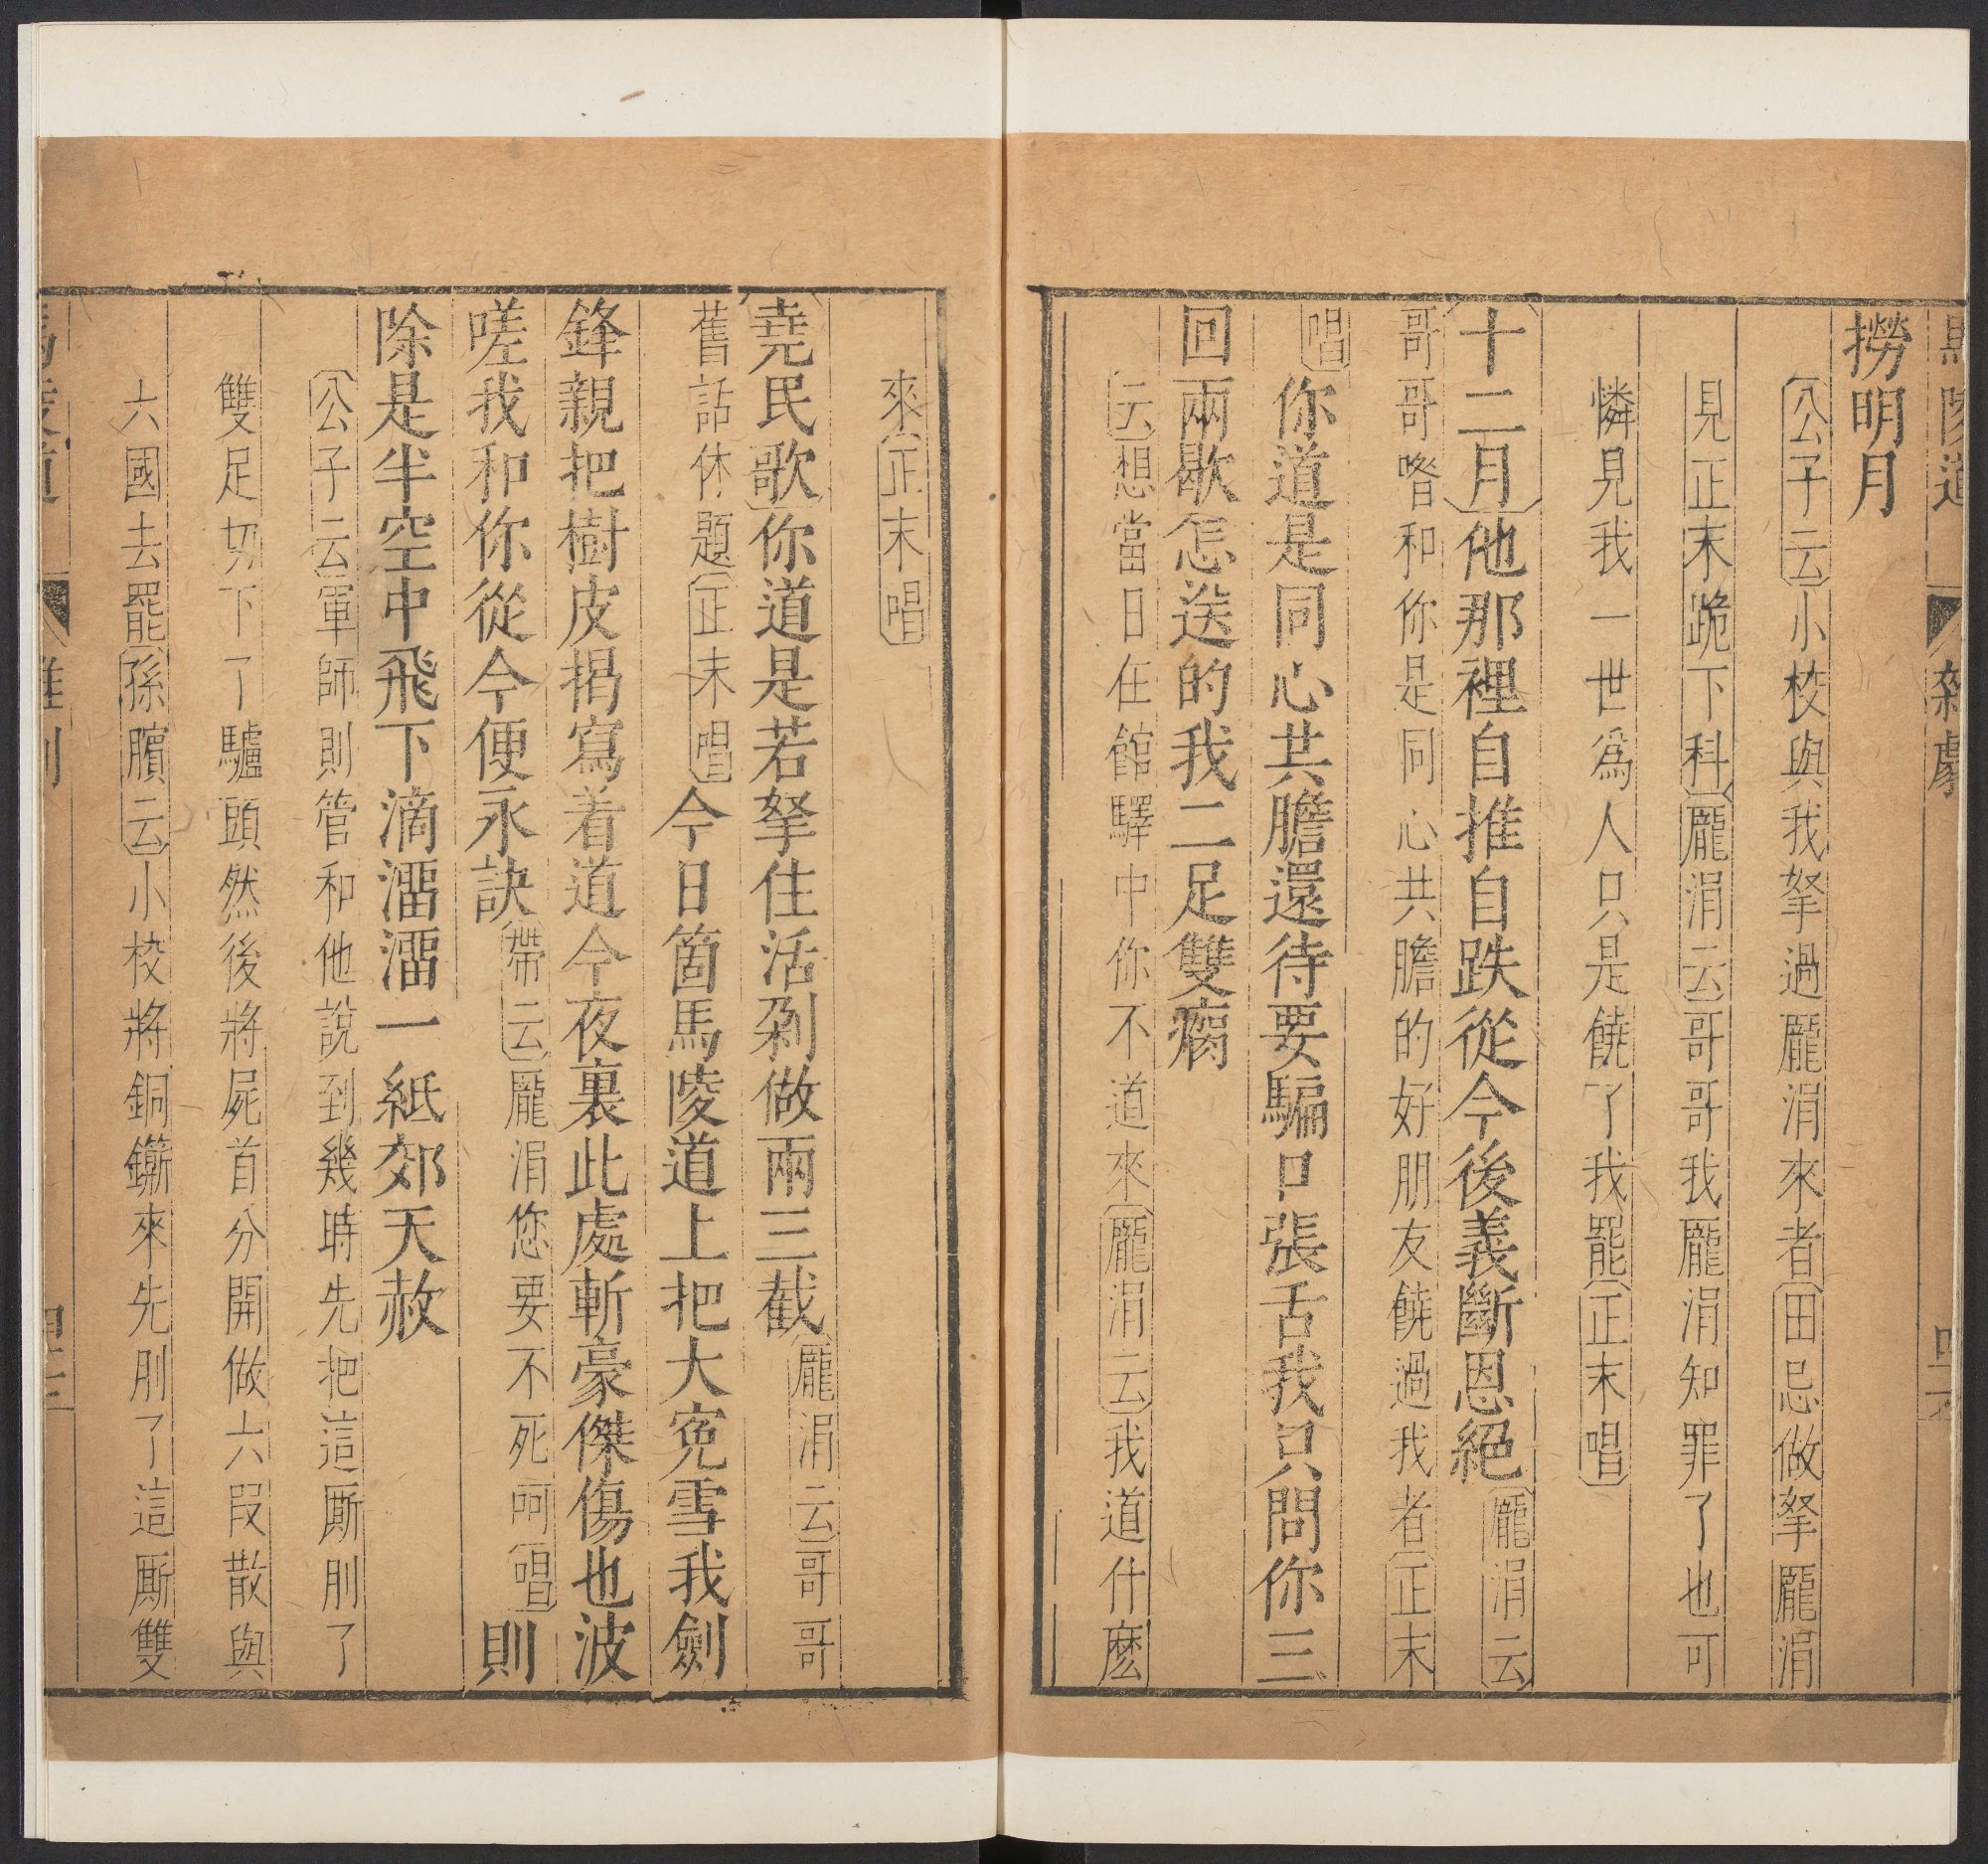 馬陵道 雜劇
撈明月
公子云小校與我拏過龐涓來者田忌做拏龐涓
見正末跪下科龐涓云哥哥我龐涓知罪了也可
憐見我一世爲人只是饒了我罷正末唱
十二月他那裡自推自跌從今後義斷恩絕龐涓云
哥哥喒和你是同心共膽的好朋友饒過我者正末
唱你道是同心共膽還待要騙口張舌我只問你三
回兩歇怎送的我二足雙瘸
云想當日在館驛中你不道來龐涓云我道什麽
來正末唱
堯民歌你道是若拏住活剐做兩三截龐涓云哥哥
舊話休題正末唱今日箇馬陵道上把大寃雪我劍
鋒親把樹皮揭寫着道今夜裏此處斬豪傑傷也波
嗟我和你從今便永訣帶云龐涓您要不死呵唱則
除是半空中飛下滴溜溜一紙郊天赦
公子云軍師則管和他說到幾時先把這厮刖了
雙足切下了驢頭然後將屍首分開做六段散與
六國去罷孫臏云小校將銅鍘來先刖了這厮雙